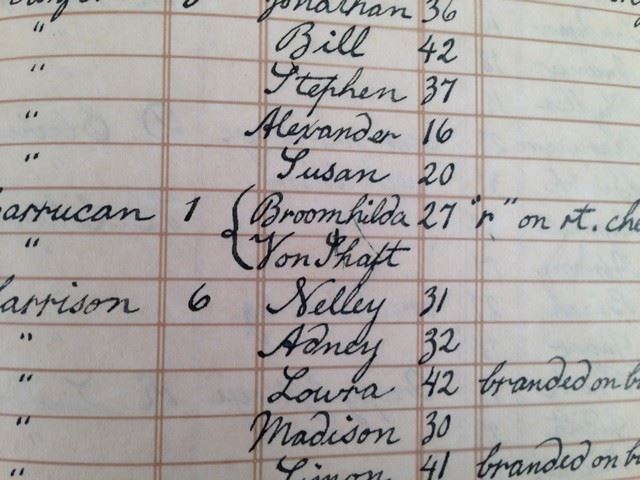 Jonathan 36
" Bill 42
" Stephen 37
" Alexander 16
" Susan 20
arrucan 1 { Broomhilda 27 "r" on rt. che
" Von Shaft
arrison 6 Nelley 31
" Adney 32
" Lowra 42 branded on b
" Madison 30
" Simon 41 branded on b